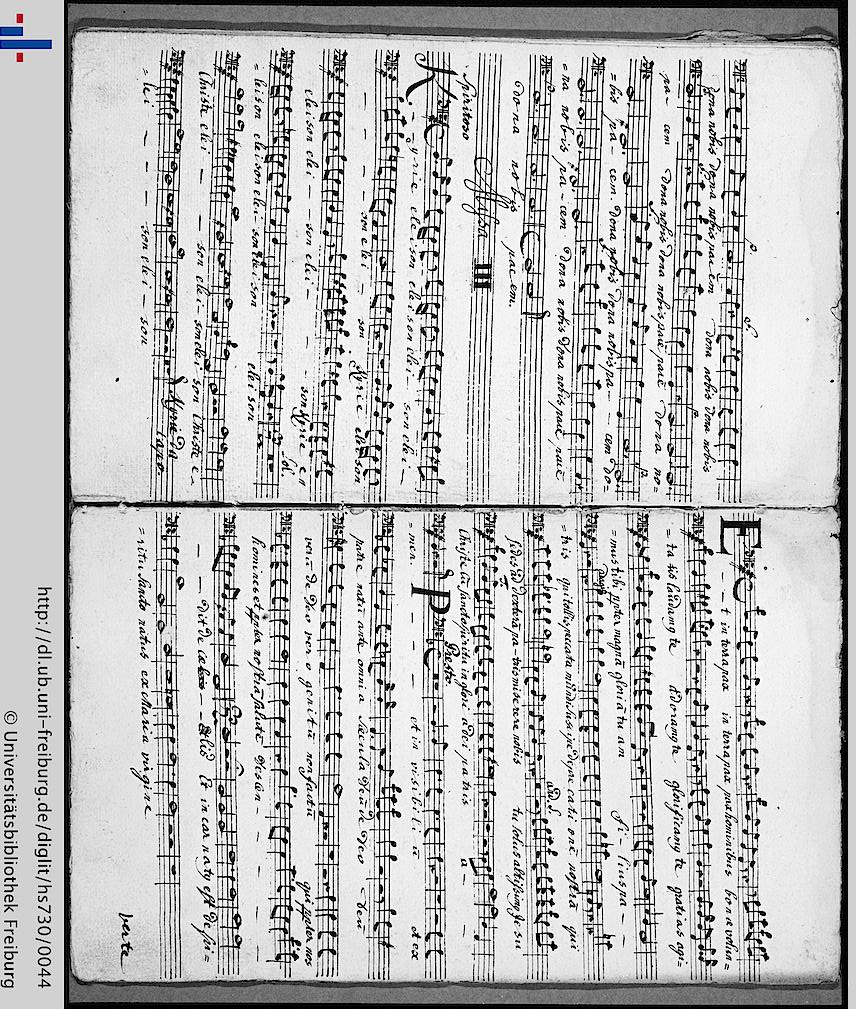 dona nobis dona nobis pacem dona nobis dona nobis
pa- cem dona nobis dona nobis pacē pacē dona no=
=bis pa- cem dona nobis dona nobis pa- - cem do=
=na nobis pa-cem dona nobis dona nobis pacē, pacē
dona nobis pacem.
Missa III
Spiritoso
Kyrie eleison eleison elei- - son elei-
- - - son elei - son Kyrie eleison
eleison elei - - son elei - - - son Kyrie e
=leison eleison elei- son elei-son eleison Sol.
Christe elei - - son elei - son elei- son Christe e-
=lei - - - son elei - son Kyrie Da
capo.
Et in terra pax in terra pax pax hominibus bonae volun=
=ta tis laudamꝰ te Adoramꝰ te glorificamꝰ te gratias agi=
=mus tibi ꝓpter magnā gloriā tu am Fi- lius pa- -
=tris qui tollis peccata mundi suscipe deprecationē nostrā qui
sedes ad dexterā pa-tris miserere nobis tu solus altissimꝰ Jesu
Christe cū sancto spiritu in gloria dei patris a- -
=men
Presto
P - - - - et in visibiliū et ex
patre natū ante omnia saecula Deū de Deo Deū
verū de Deo vero genitū non factū qui ꝓpter nos
homines et ꝓpter nostrā salutē descen- - - - -
- - dit de caelis - - Et incarnatꝰ est de spi=
=ritu sancto natus ex Maria virgine.
verte
http://dl.ub.uni-freiburg.de/diglit/hs730/0044
© Universitätsbibliothek Freiburg